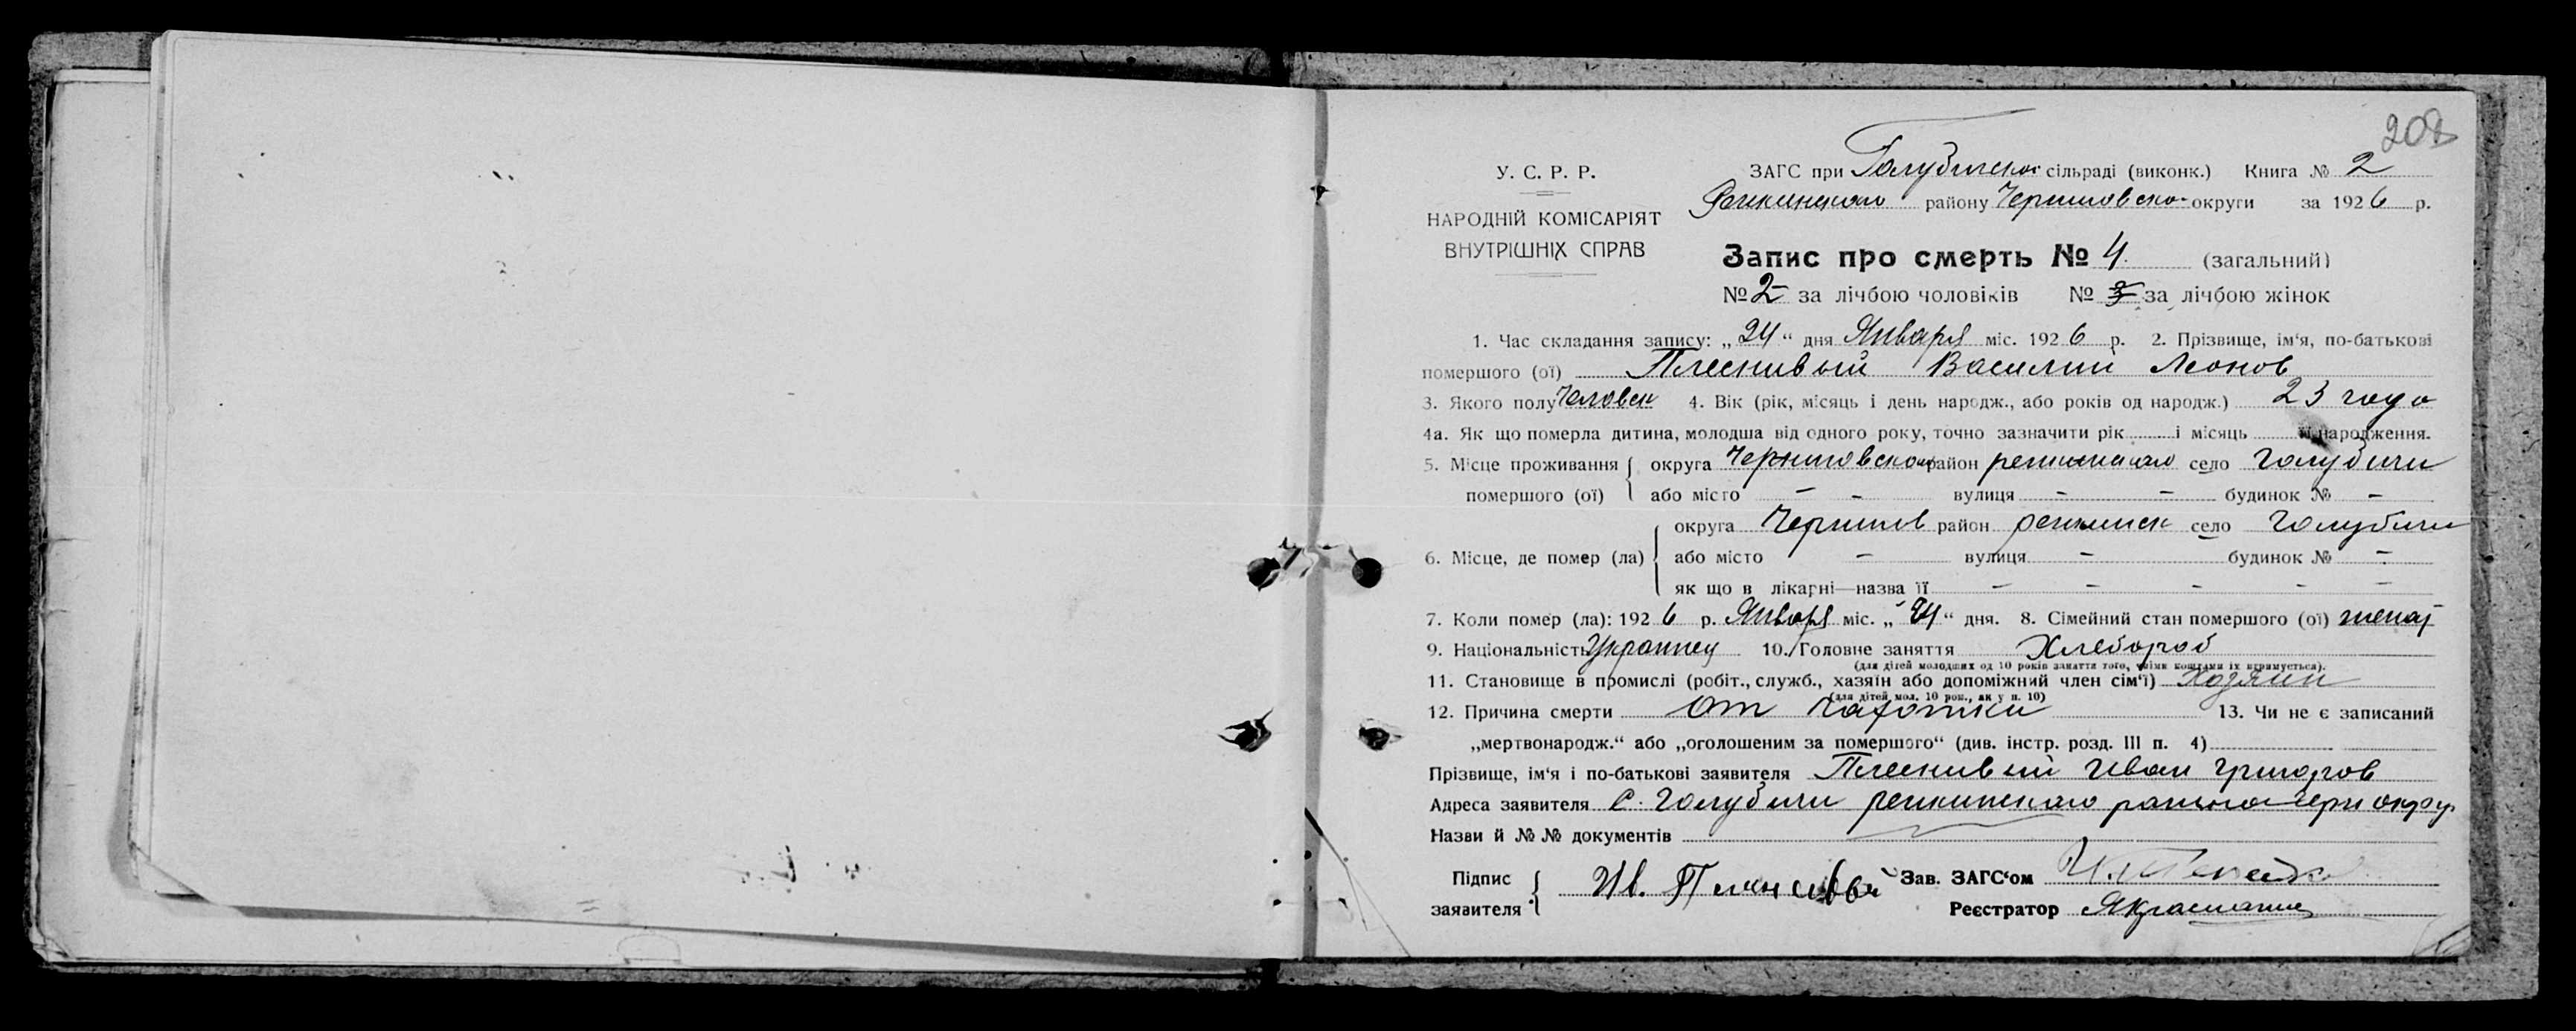 208
У. С. Р. Р.
НАРОДНІЙ КОМІСАРІЯТ
ВНУТРІШНІХ СПРАВ
ЗАГС при Голубичской сільраді (виконк.) Книга № 2
Репкинского району Черниговской округи за 1926 р.
Запис про смерть № 4 (загальний)
№ 2 за лічбою чоловіків № за лічбою жінок
1. Час складання запису: „24“ дня Января міс. 1926 р. 2. Прізвище, ім‘я, по-батькові
помершого (ої) Плеснивый Василий Леонов
3. Якого полу Человек 4. Вік (рік, місяць і день народж., або років од народж.) 23 года
4а. Як що померла дитина, молодша від одного року, точно зазначити рік і місяць її народження.
5. Місце проживання помершого (ої) { округа Черниговской район репкинского село Голубичи
або місто – – вулиця – – будинок № –
6. Місце, де помер (ла) { округа Чернигов район репкинск село Голубичи
або місто – вулиця – будинок № –
як що в лікарні—назва її – – – – –
7. Коли помер (ла): 1926 р. Января міс. „24“ дня. 8. Сімейний стан помершого (ої) женат
9. Національність Украинец 10. Головне заняття Хлебороб
(для дітей молодших од 10 років заняття того, чиїми коштами їх втримується).
11. Становище в промислі (робіт., служб., хазяїн або допоміжний член сім‘ї) Хозяин
(для дітей мол. 10 рок., як у п. 10)
12. Причина смерти От чахотки 13. Чи не є записаний
„мертвонародж.“ або „оголошеним за помершого“ (див. інстр. розд. III п. 4)
Прізвище, ім‘я і по-батькові заявителя Плеснивый Иван Григоров
Адреса заявителя с. Голубичи репкинского района Черн округ
Назви й №№ документів
Підпис заявителя { Ив. Зав. ЗАГС‘ом
Реєстратор